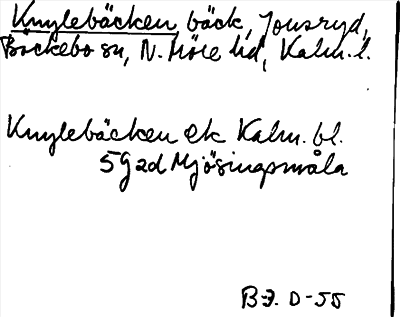 Knylebäcken, bäck, Jonsryd,
Bäckebo sn, N. Möre hd, Kalm. l.
Knylebäcken ek Kalm. bl.
5G ad Mjösingsmåla
B-J. D-55